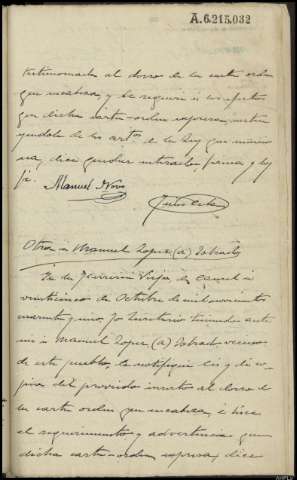 A.6.215.032
testimoniada al dorso de la carta orden
que encabeza, y le requerí a los efectos
que dicha carta-orden expresa, instru
yéndole de los artos de la Ley que mencio
na, dice quedar enterado, firma, y doy
fe. Manuel
Otra a Manuel Lopez (a) Dobrado
En de
veinticinco de Octubre de mil novecientos
cuarenta y uno, Yo Secretario teniendo ante
mi a Manuel Lopez (a) Dobrado vecino
de este pueblo, le notifiqué leí y di co
pia del proveido inserto al dorso de
la carta orden que encabeza, é hice
el requerimiento y advertencia que
dicha carta-orden expresa, dice